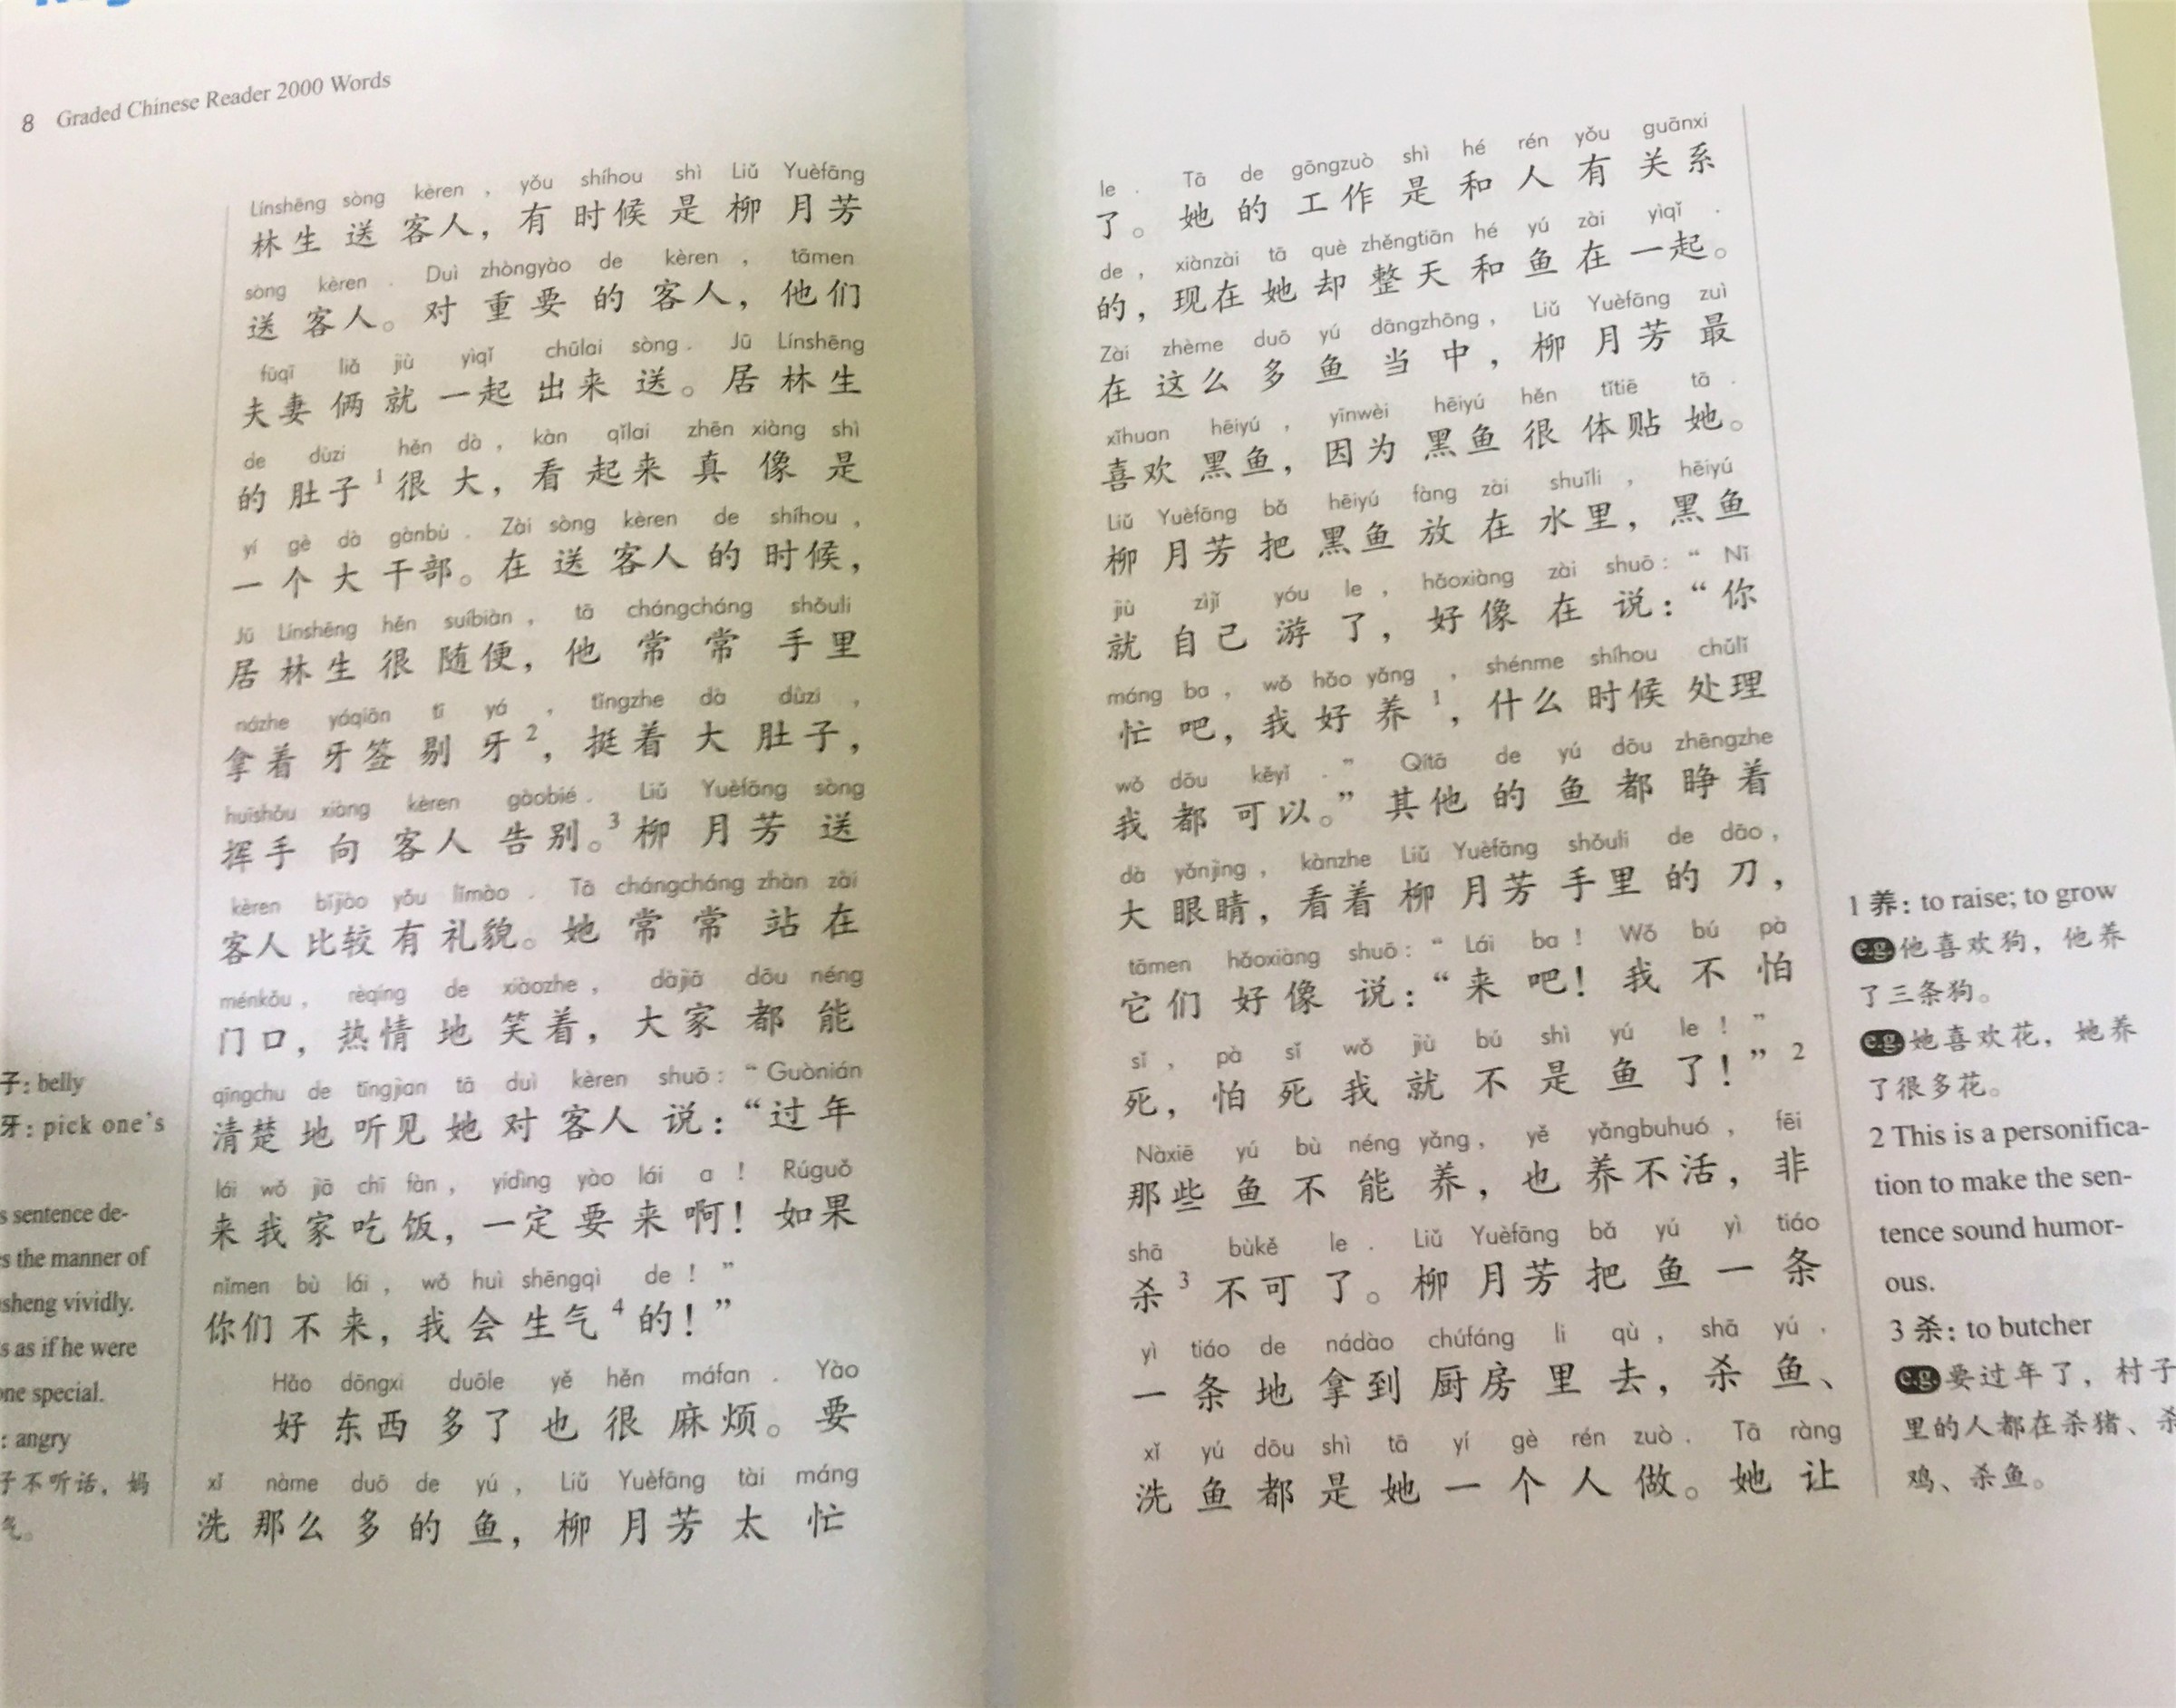 8 Graded Chinese Reader 2000 Words
Línshēng sòng kèren , yǒu shíhou shì Liǔ Yuèfāng
林生送客人，有时候是柳月芳
sòng kèren . Duì zhòngyào de kèren , tāmen
送客人。对重要的客人，他们
fūqī liǎ jiù yìqǐ chūlai sòng . Jū Línshēng
夫妻俩就一起出来送。居林生
de dùzi hěn dà , kàn qǐlai zhēn xiàng shì
的肚子1很大，看起来真像是
yí gè dà gànbù . Zài sòng kèren de shíhou ,
一个大干部。在送客人的时候，
Jū Línshēng hěn suíbiàn , tā chángcháng shǒuli
居林生很随便，他常常手里
názhe yáqiān tī yá , tǐngzhe dà dùzi ,
拿着牙签剔牙2，挺着大肚子，
huīshǒu xiàng kèren gàobié . Liǔ Yuèfāng sòng
挥手向客人告别。3柳月芳送
kèren bǐjiào yǒu lǐmào . Tā chángcháng zhàn zài
客人比较有礼貌。她常常站在
ménkǒu , rèqíng de xiàozhe , dàjiā dōu néng
门口，热情地笑着，大家都能
qīngchu de tīngjian tā duì kèren shuō : “ Guònián
清楚地听见她对客人说：“过年
lái wǒ jiā chī fàn , yídìng yào lái a ! Rúguǒ
来我家吃饭，一定要来啊！如果
nǐmen bù lái , wǒ huì shēngqì de ! ”
你们不来，我会生气4的！”
Hǎo dōngxi duōle yě hěn máfan . Yào
好东西多了也很麻烦。要
xǐ nàme duō de yú , Liǔ Yuèfāng tài máng
洗那么多的鱼，柳月芳太忙
子: belly
牙: pick one’s
sentence de-
the manner of
sheng vividly.
as if he were
one special.
: angry
子不听话，妈
气。
le . Tā de gōngzuò shì hé rén yǒu guānxi
了。她的工作是和人有关系
de , xiànzài tā què zhěngtiān hé yú zài yìqǐ .
的，现在她却整天和鱼在一起。
Zài zhème duō yú dāngzhōng , Liǔ Yuèfāng zuì
在这么多鱼当中，柳月芳最
xǐhuan hēiyú , yīnwèi hēiyú hěn tǐtiē tā .
喜欢黑鱼，因为黑鱼很体贴她。
Liǔ Yuèfāng bǎ hēiyú fàng zài shuǐli , hēiyú
柳月芳把黑鱼放在水里，黑鱼
jiù zìjǐ yóu le , hǎoxiàng zài shuō : “ Nǐ
就自己游了，好像在说：“你
máng ba , wǒ hǎo yǎng , shénme shíhou chǔlǐ
忙吧，我好养1，什么时候处理
wǒ dōu kěyǐ . ” Qítā de yú dōu zhēngzhe
我都可以。”其他的鱼都睁着
dà yǎnjing , kànzhe Liǔ Yuèfāng shǒuli de dāo ,
大眼睛，看着柳月芳手里的刀，
tāmen hǎoxiàng shuō : “ Lái ba ! Wǒ bú pà
它们好像说：“来吧！我不怕
sǐ , pà sǐ wǒ jiù bú shì yú le ! ”
死，怕死我就不是鱼了！”2
Nàxiē yú bù néng yǎng , yě yǎngbuhuó , fēi
那些鱼不能养，也养不活，非
shā bùkě le . Liǔ Yuèfāng bǎ yú yì tiáo
杀3不可了。柳月芳把鱼一条
yì tiáo de nádào chúfáng li qù , shā yú 、
一条地拿到厨房里去，杀鱼、
xǐ yú dōu shì tā yí gè rén zuò . Tā ràng
洗鱼都是她一个人做。她让
1 养: to raise; to grow
e.g. 他喜欢狗，他养
了三条狗。
e.g. 她喜欢花，她养
了很多花。
2 This is a personifica-
tion to make the sen-
tence sound humor-
ous.
3 杀: to butcher
e.g. 要过年了，村子
里的人都在杀猪、杀
鸡、杀鱼。